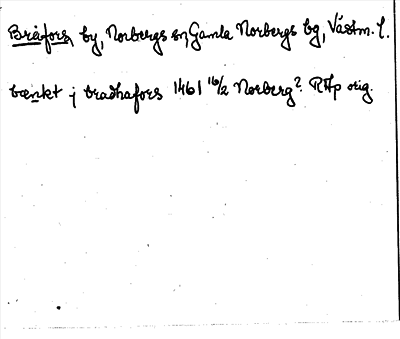 Bråfors, by, Norbergs sn, Gamla Norbergs bg, Västm. l.
bænkt j bradhafors 1461 16/2 Norberg? RAp orig.